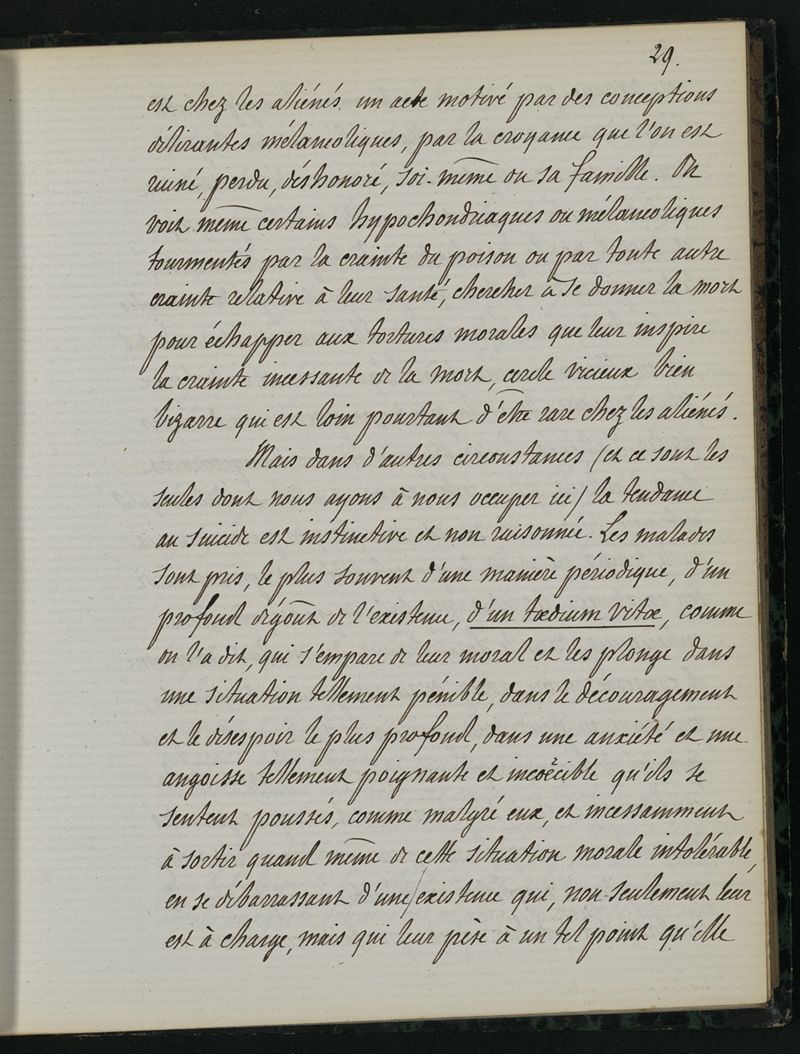 29.
est chez les aliénés un acte motivé par des conceptions
délirantes mélancoliques, par la croyance que l'on est
ruiné, perdu, déshonoré, soi-même ou sa famille. On
voit même certains hypochondriaques ou mélancoliques
tourmentés par la crainte du poison ou par toute autre
crainte relative à leur santé, chercher à se donner la mort
pour échapper aux tortures morales que leur inspire
la crainte incessante de la mort, cercle vicieux bien
bizarre qui est loin pourtant d'être rare chez les aliénés.
Mais dans d'autres circonstances (et ce sont les
seules dont nous ayons à nous occuper ici) la tendance
au suicide est instinctive et non raisonnée. Les malades
sont pris, le plus souvent d'une manière périodique, d'un
profond dégoût de l'existence, d'un tœdium vitœ, comme
on l'a dit, qui s'empare de leur moral et les plonge dans
une situation tellement pénible, dans le découragement
et le désespoir le plus profond, dans une anxiété et une
angoisse tellement poignante et incoërcible qu'ils se
sentent poussés, comme malgré eux, et incessamment
à sortir quand même de cette situation morale intolérable,
en se débarrassant d'une existence qui, non-seulement leur
est à charge, mais qui leur pèse à un tel point qu'elle